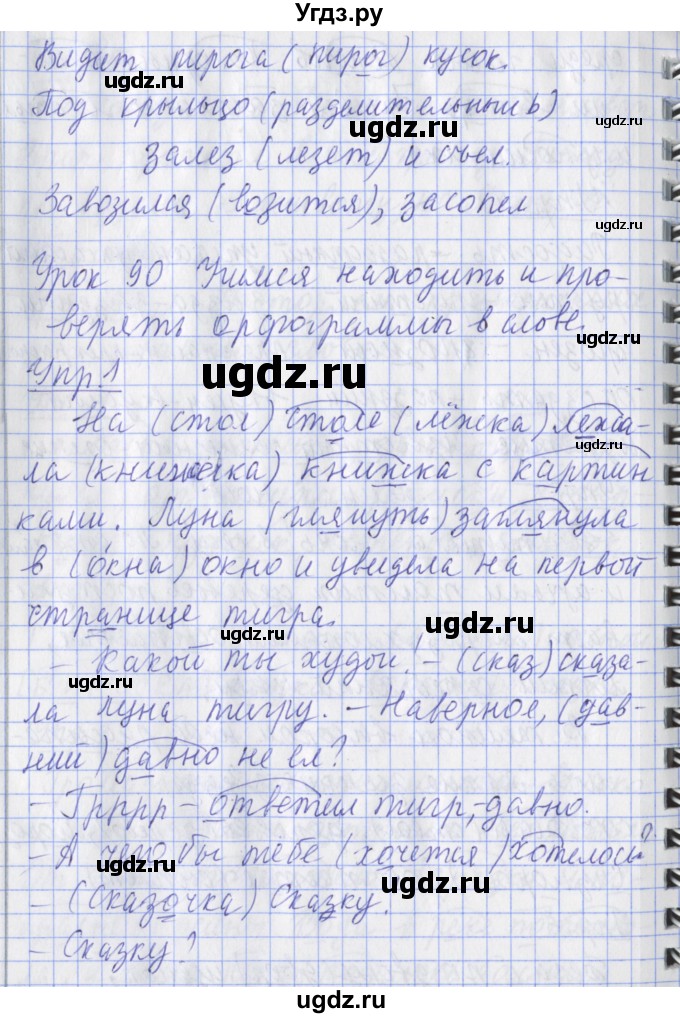 Угдз.ру
Видит пирога (пирог) кусок.
Под крыльцо (разделительный ь)
залез (лезет) и съел.
Завозился (возится), засопел
Урок 90 Учимся находить и про-
верять орфограммы в слове.
Упр.1
На (стол) столе (лёжка) лежа-
ла (книжечка) книжка с картин
ками. Луна (глянуть) заглянула
в (о́кна) окно и увидела на первой
странице тигра.
- Какой ты худой! - (сказ) сказа-
ла Луна тигру. - Наверное, (дав-
ний) давно не ел?
- Грррр - ответил тигр, - давно.
- А чего бы тебе (хочется) хотелось?
- (Сказочка) Сказку.
- Сказку?
ugdz.ru